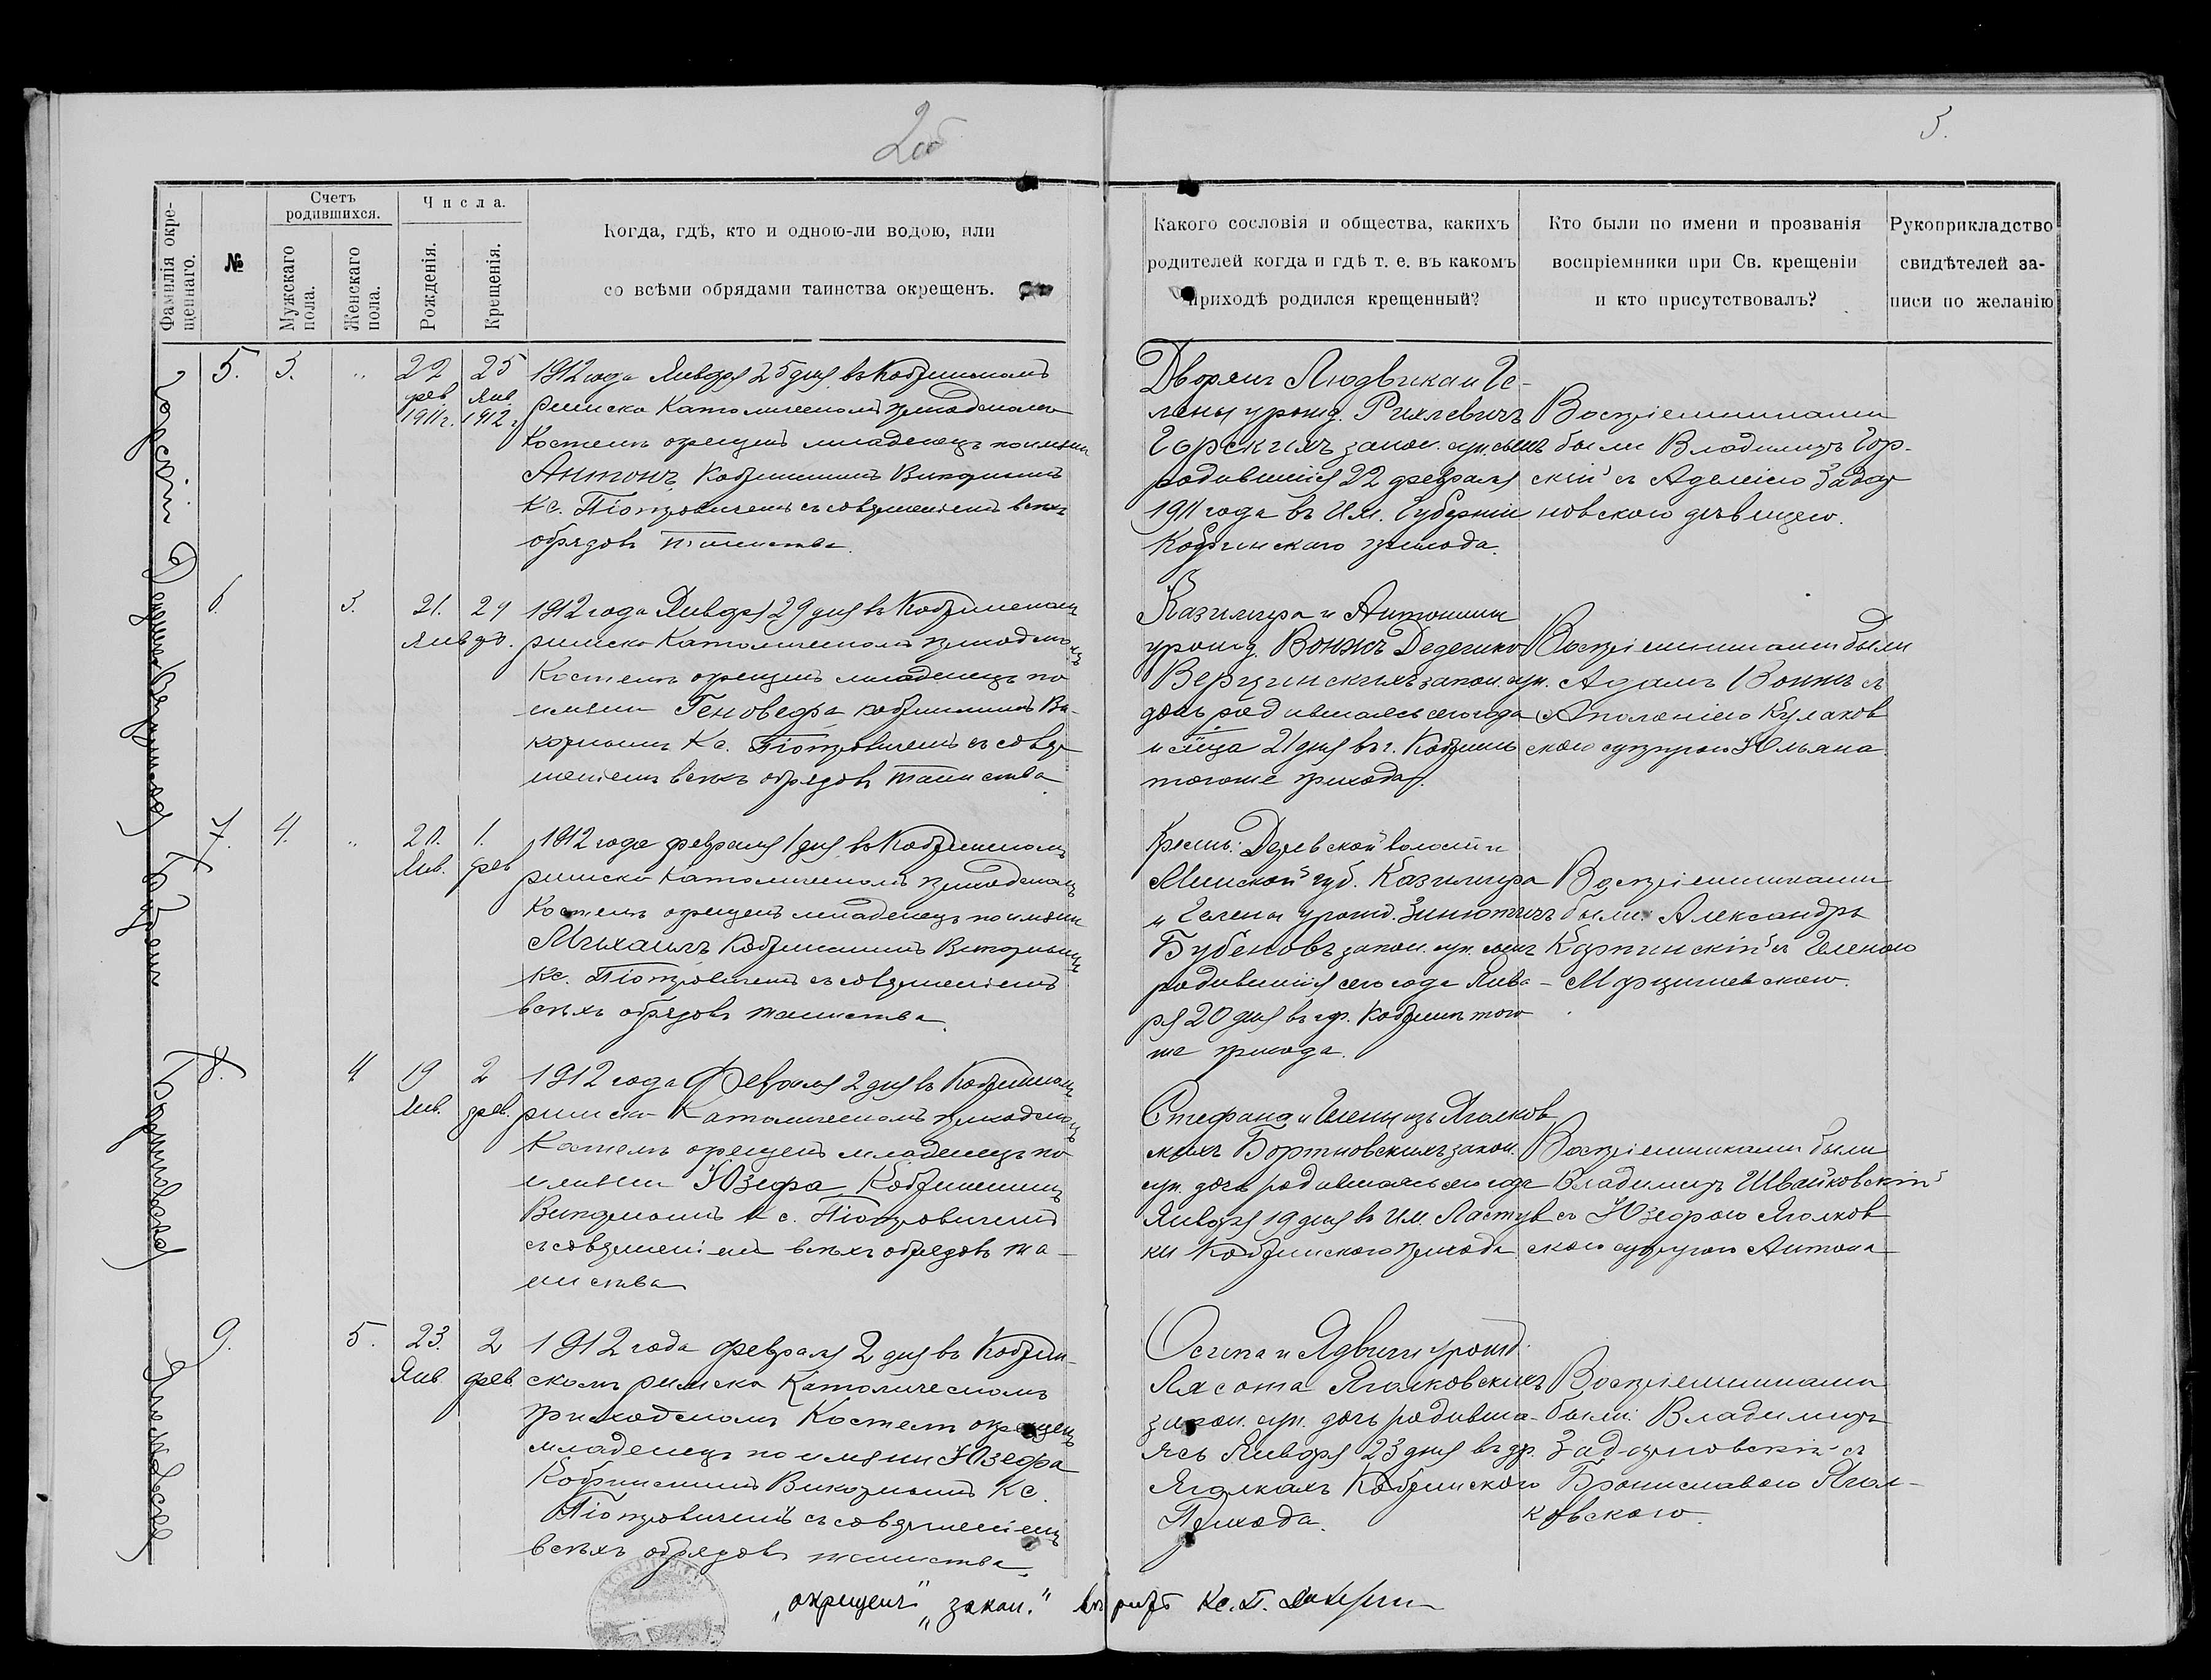 2об
5.
Фамилія окре-
щеннаго.
№
Счетъ
родившихся.
Мужскаго
пола.
Женскаго
пола.
Числа.
Рожденія.
Крещенія.
Когда, гдѣ, кто и одною-ли водою, или
со всѣми обрядами таинства окрещенъ.
Какого сословія и общества, какихъ
родителей когда и гдѣ т. е. въ какомъ
приходѣ родился крещенный?
Кто были по имени и прозванія
воспріемники при Св. крещеніи
и кто присутствовалъ?
Рукоприкладство
свидѣтелей за-
писи по желанію
Горскій
5.
3.
„
22
фев.
1911 г.
25
Янв.
1912 г.
1912 года Января 25 дня въ Кобринскомъ
римско Католическомъ приходскомъ
Костелѣ окрещенъ младенецъ по имени
Антонъ Кобринскимъ Викарнымъ
Кс. Піотровичемъ съ совершеніемъ всѣхъ
обрядовъ таинства.
Дворянъ Людвика и Ге-
лены урожд. Рихлевичъ
Горскихъ закон. суп. сынъ
родившійся 22 февраля
1911 года въ Им. Губерніи
Кобринскаго прихода.
Воспріемниками
были Владимиръ Гор-
скій съ Аделіею Задар
новскою дѣвицею.
6.
3.
21.
29
Января.
1912 года Января 29 дня въ Кобринскомъ
римско Католическомъ приходскомъ
Костелѣ окрещенъ младенецъ по
имени Геновефа Кобринскимъ Ви-
карнымъ Кс. Піотровичемъ съ совер-
шеніемъ всѣхъ обрядовъ таинства.
Казимира и Антонины
урожд. Вонжъ Дедерико
закон. суп.
дочь родившаяся сего года
и м̃ца 21 дня въ г. Кобринѣ
тогоже прихода.
Воспріемниками были
Адамъ Вонжъ съ
Аполоніею Кулаков
скою супругою Юльяна.
Бубенъ
7.
4.
„
20.
Янв.
1.
фев
1912 года февраля 1 дня въ Кобринскомъ
римско Католическомъ приходскомъ
Костелѣ окрещенъ младенецъ по имени
Михаилъ Кобринскимъ Викарнымъ
Кс. Піотровичемъ съ совершеніемъ
всѣхъ обрядовъ таинства.
Крест. Деревской волости
Минской губ. Казимира
и Гелены урожд. Зинютичъ
Бубеновъ закон. суп. сынъ
родившійся сего года Янва-
ря 20 дня въ гор. Кобринѣ того
же прихода.
Воспріемниками
были: Александръ
Карпинскій съ Геленою
Марцишевскою.
Бортновская
8.
4
19
Янв.
2
фев.
1912 года Февраля 2 дня въ Кобринскомъ
римско Католическомъ приходскомъ
Костелѣ окрещенъ младенецъ по
имени Юзефа Кобринскимъ
Викарнымъ Кс. Піотровичемъ
съ совершеніемъ всѣхъ обрядовъ та-
инства
Стефана и Гелены изъ Яголков
скихъ Бортновскихъ закон.
суп. дочь родившаяся сего года
Января 19 дня въ Им. Ластув
ки Кобринскаго прихода.
Воспріемниками были
Владимиръ Швайковскій
съ Юзефою Яголков
скою супругою Антона
Яголковская
9.
5.
23.
Янв
2
фев.
1912 года февраля 2 дня въ Кобрин-
скомъ римско Католическомъ
приходскомъ Костелѣ окрещенъ
младенецъ по имени Юзефа
Кобринскимъ Викарнымъ Кс.
Піотровичемъ съ совершеніемъ
всѣхъ обрядовъ таинства.
Осипа и Ядвиги урожд.
Лясота Яголковскихъ
закон. суп. дочь родивша-
яся Января 23 дня въ др.
Яголкахъ Кобринскаго
Прихода.
Воспріемниками
были: Владимиръ
Задарновскій съ
Брониславою Ягол-
ковскою.
„окрещенъ" „закон."
Кс. П.